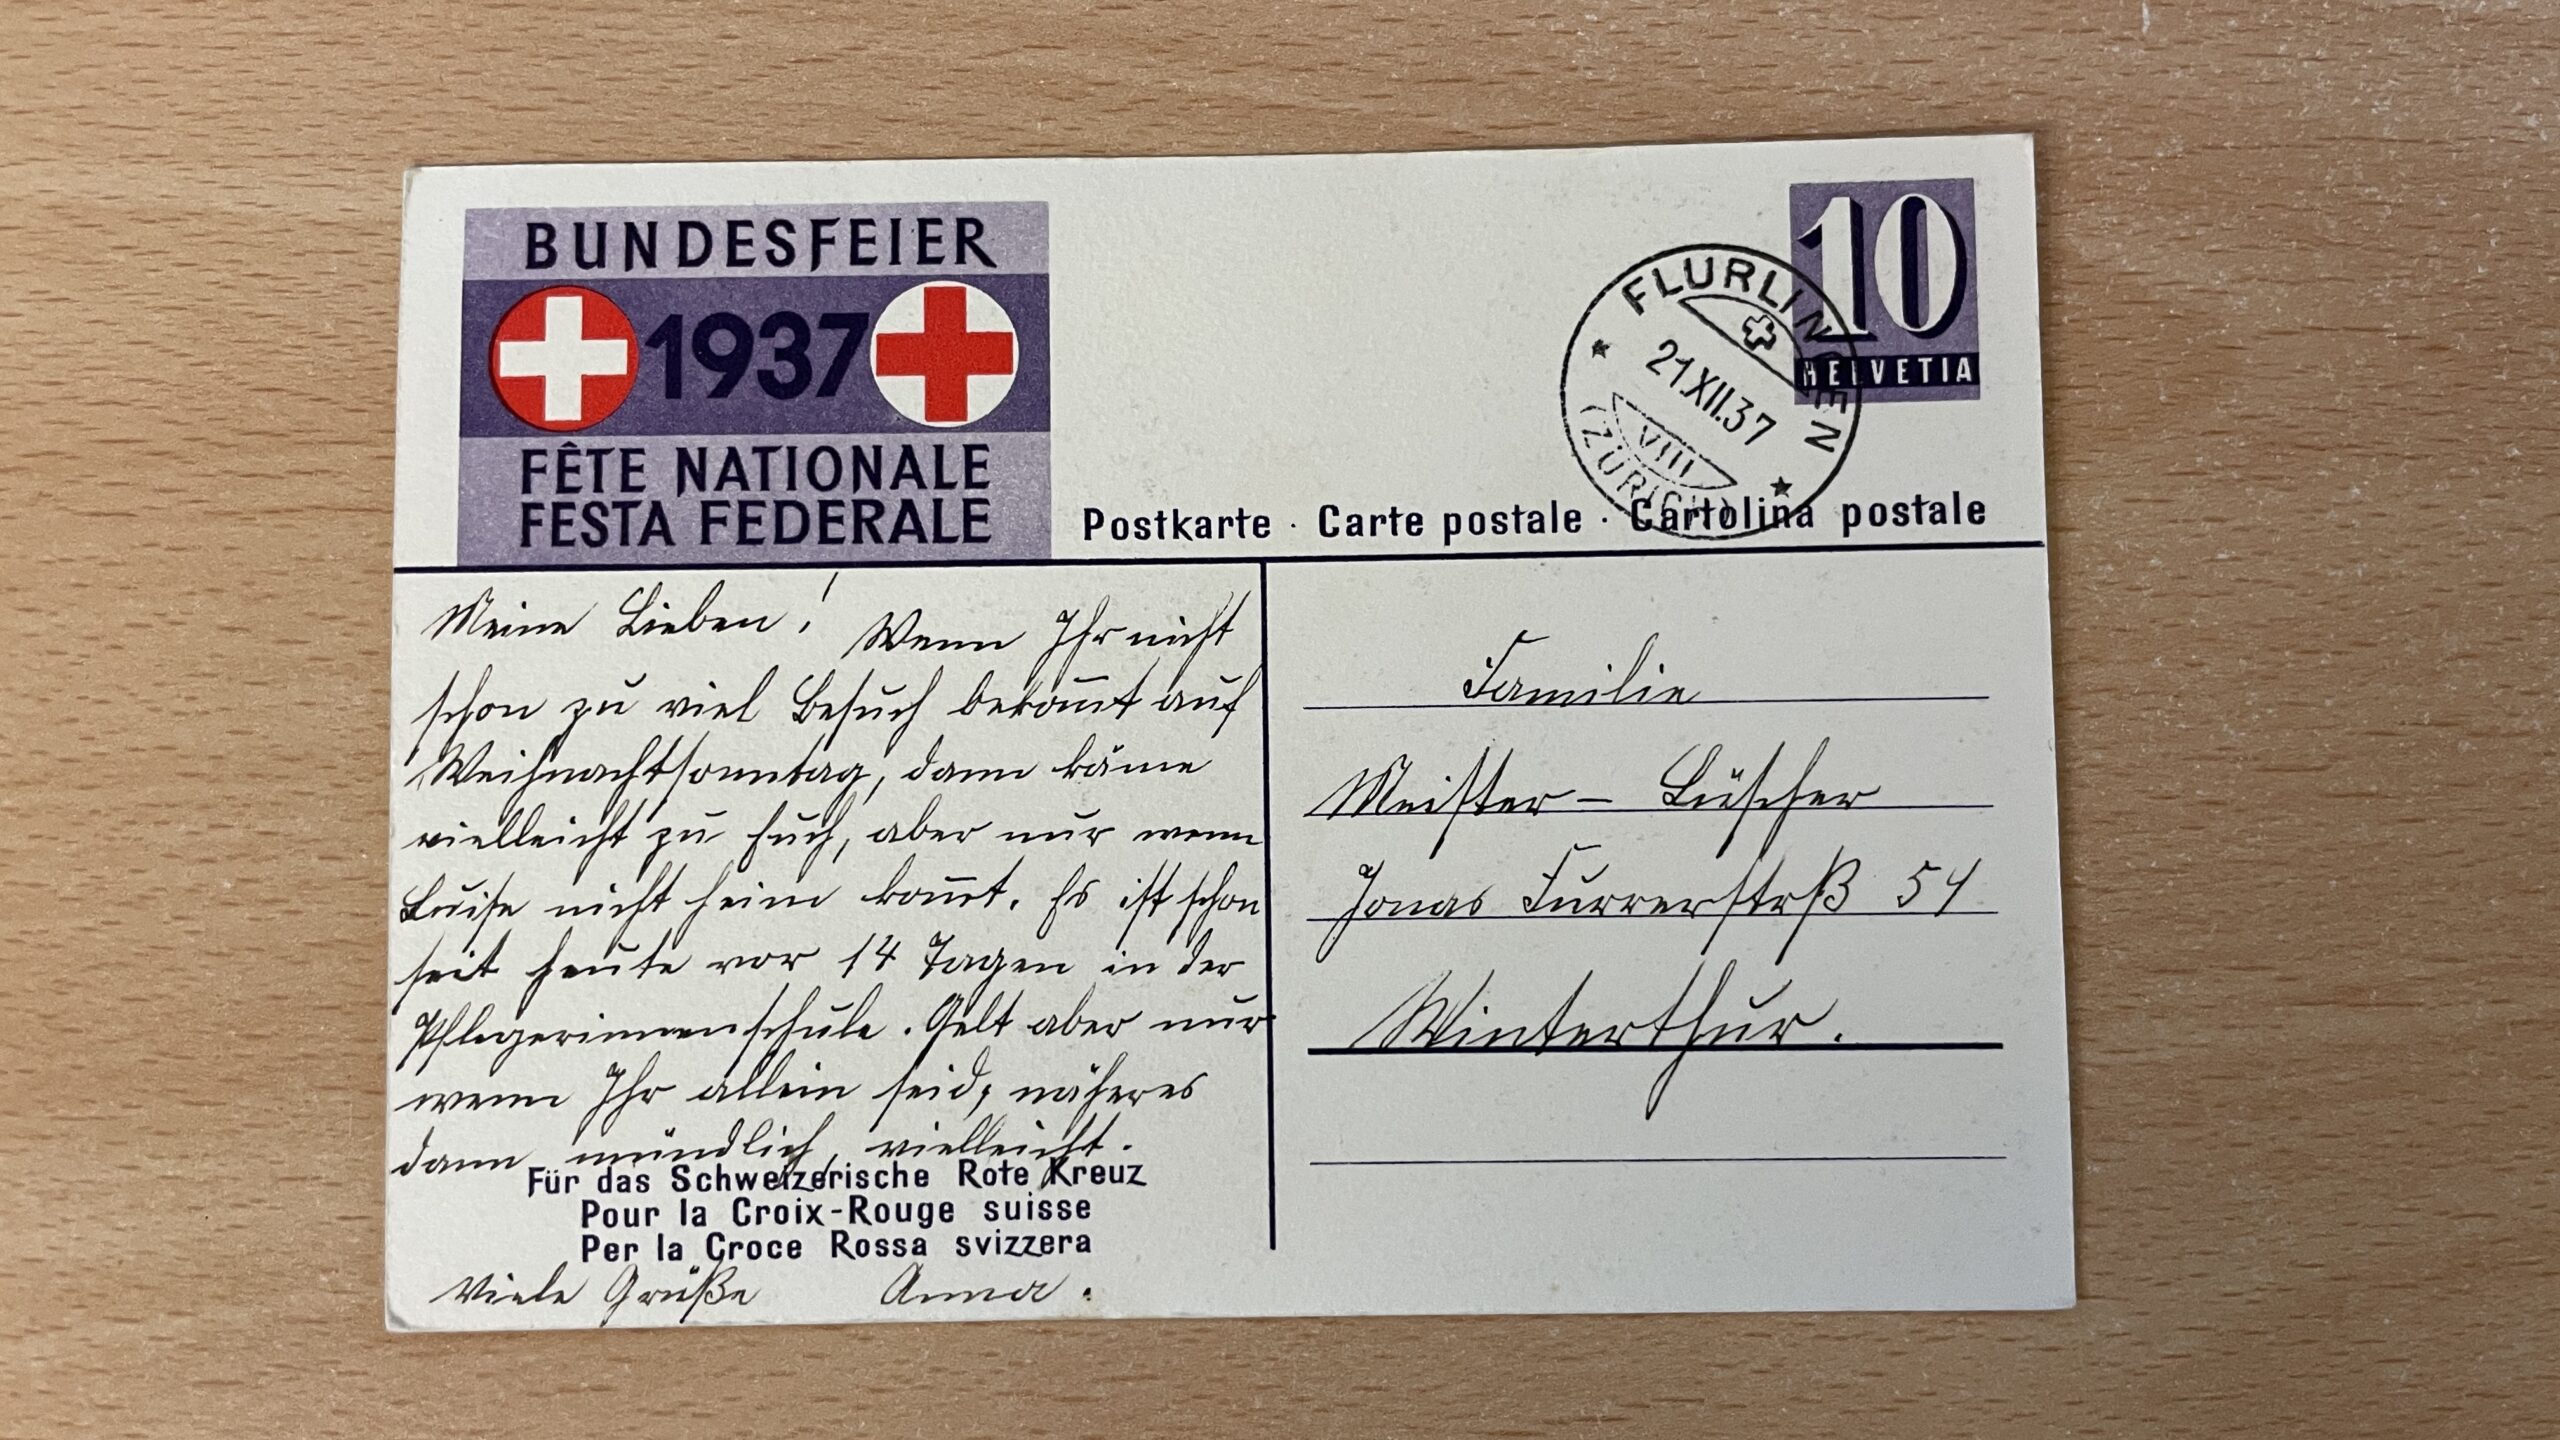 BUNDESFEIER
1937
FÊTE NATIONALE
FESTA FEDERALE
10
HELVETIA
FLURLINGEN
21.XII.37
VIII
(ZÜRICH)
Postkarte · Carte postale · Cartolina postale
Meine Lieben! Wenn Ihr nicht
schon zu viel Besuch bekom̅t auf
Weihnachtsonntag, dann käme
vielleicht zu Euch, aber nur wenn
Luise nicht heim kom̅t. Es ist schon
seit heute vor 14 Tagen in der
Pflegerinnenschule. Gelt aber nur
wenn Ihr allein seid, näheres
dann mündlich, vielleicht.
Für das Schweizerische Rote Kreuz
Pour la Croix-Rouge suisse
Per la Croce Rossa svizzera
Viele Grüße Anna.
Familie
Meister - Lüscher
Jonas Furrerstrß 54
Winterthur.